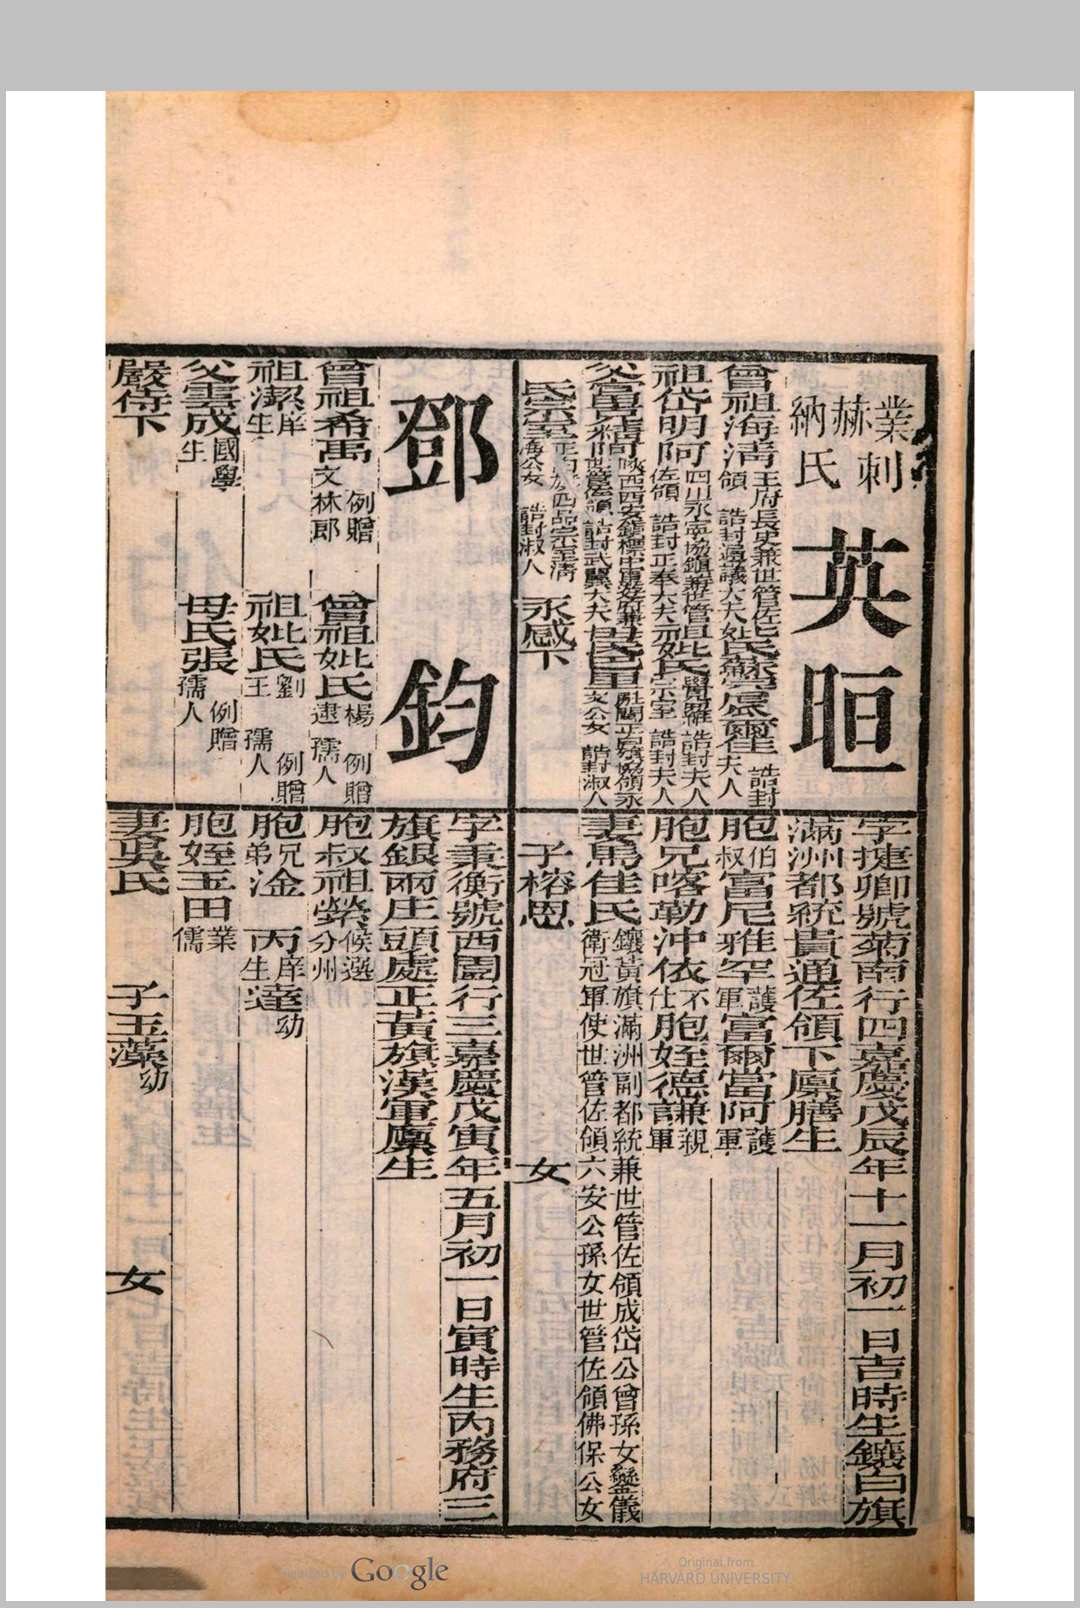 業赫納
刺氏
英晅
字捷卿號菊南行四嘉慶戊辰年十一月初一日吉時生鑲白旗
滿洲都統貴通佐領下廩膳生
曾祖海清王府長史兼世管佐領 誥封通議大夫妣氏蘇完瓜爾佳 誥封夫人
胞伯叔富尼雅罕護軍富爾當阿護軍
祖岱明阿四川永寧協鎮兼世管佐領 誥封正奉大夫祖妣氏覺羅 誥封夫人宗室 誥封夫人
胞兄喀勒沖依不仕胞姪德謙親軍
父富呢精阿陝西西安鎮標中軍遊府兼世管佐領 誥封武翼大夫母氏巴里 文公女 誥封淑人
妻馬佳氏鑲黃旗滿洲副都統兼世管佐領成岱公曾孫女鑾儀衛冠軍使世管佐領六安公孫女世管佐領佛保公女
氏宗室四品宗室清海公女 誥封淑人 永感下
子榕恩 女
鄧鈞
字秉衡號西園行三嘉慶戊寅年五月初一日寅時生內務府三
旗銀兩庄頭處正黃旗漢軍廩生
曾祖希禹例贈文林郎 曾祖妣氏楊 例贈逮 孺人
胞叔祖榮候選分州
祖潔庠生 祖妣氏劉王 例贈孺人
胞兄弟淦 丙庠生達幼
父雲成國學生 母氏張例贈孺人
胞姪玉田業儒
嚴侍下
妻吳氏 子玉藻幼 女
Digitized by Google
Original from
HARVARD UNIVERSITY